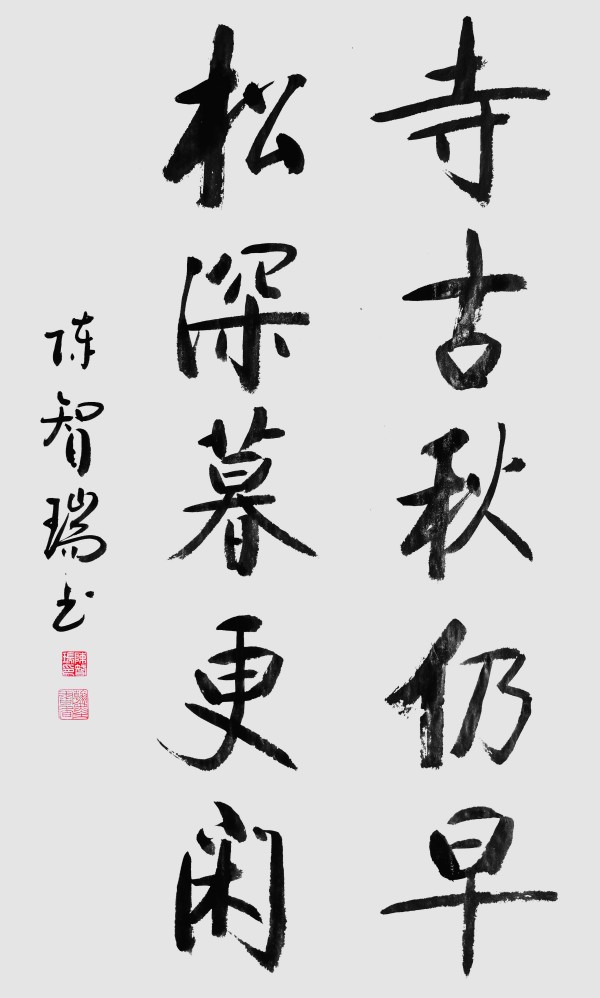 寺古秋仍早
松深暮更闲
陈智瑞书